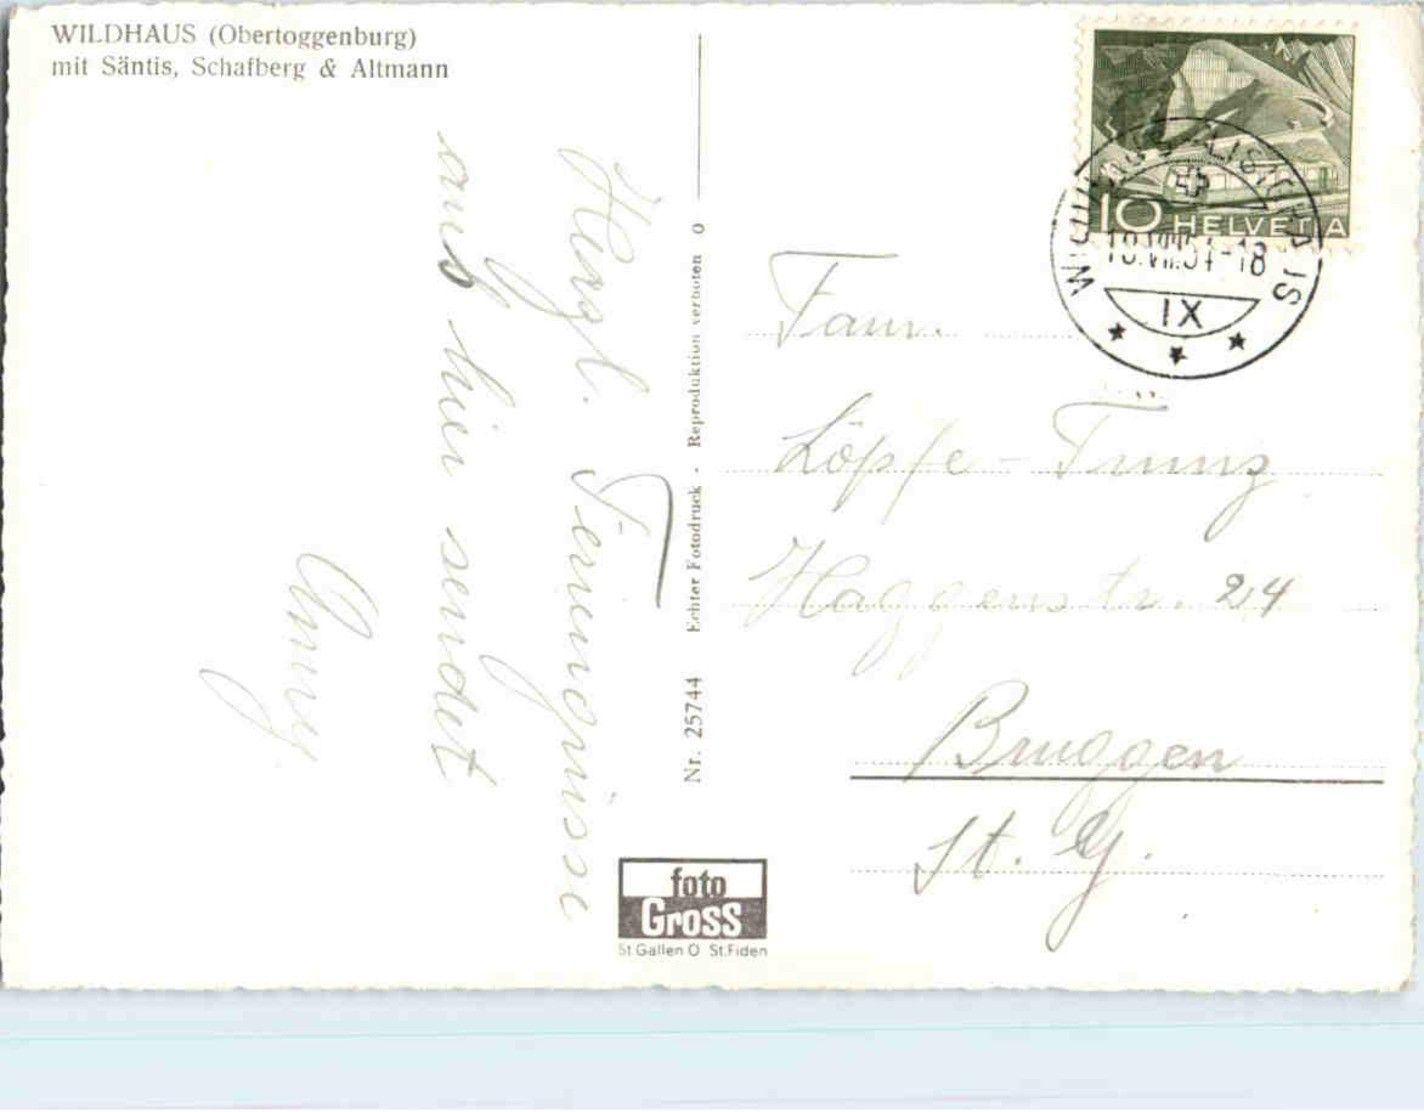 WILDHAUS (Obertoggenburg)
mit Säntis, Schafberg & Altmann
Hergl. Feriengrüsse
aus hier sendet
Anny
Nr. 25744 Echter Fotodruck - Reproduktion verboten O
foto
Gross
St.Gallen O St.Fiden
10 HELVETIA
-18
IX
Fam.
Löpfe-Trunz
Haggenstr. 24
Bruggen
St. G.